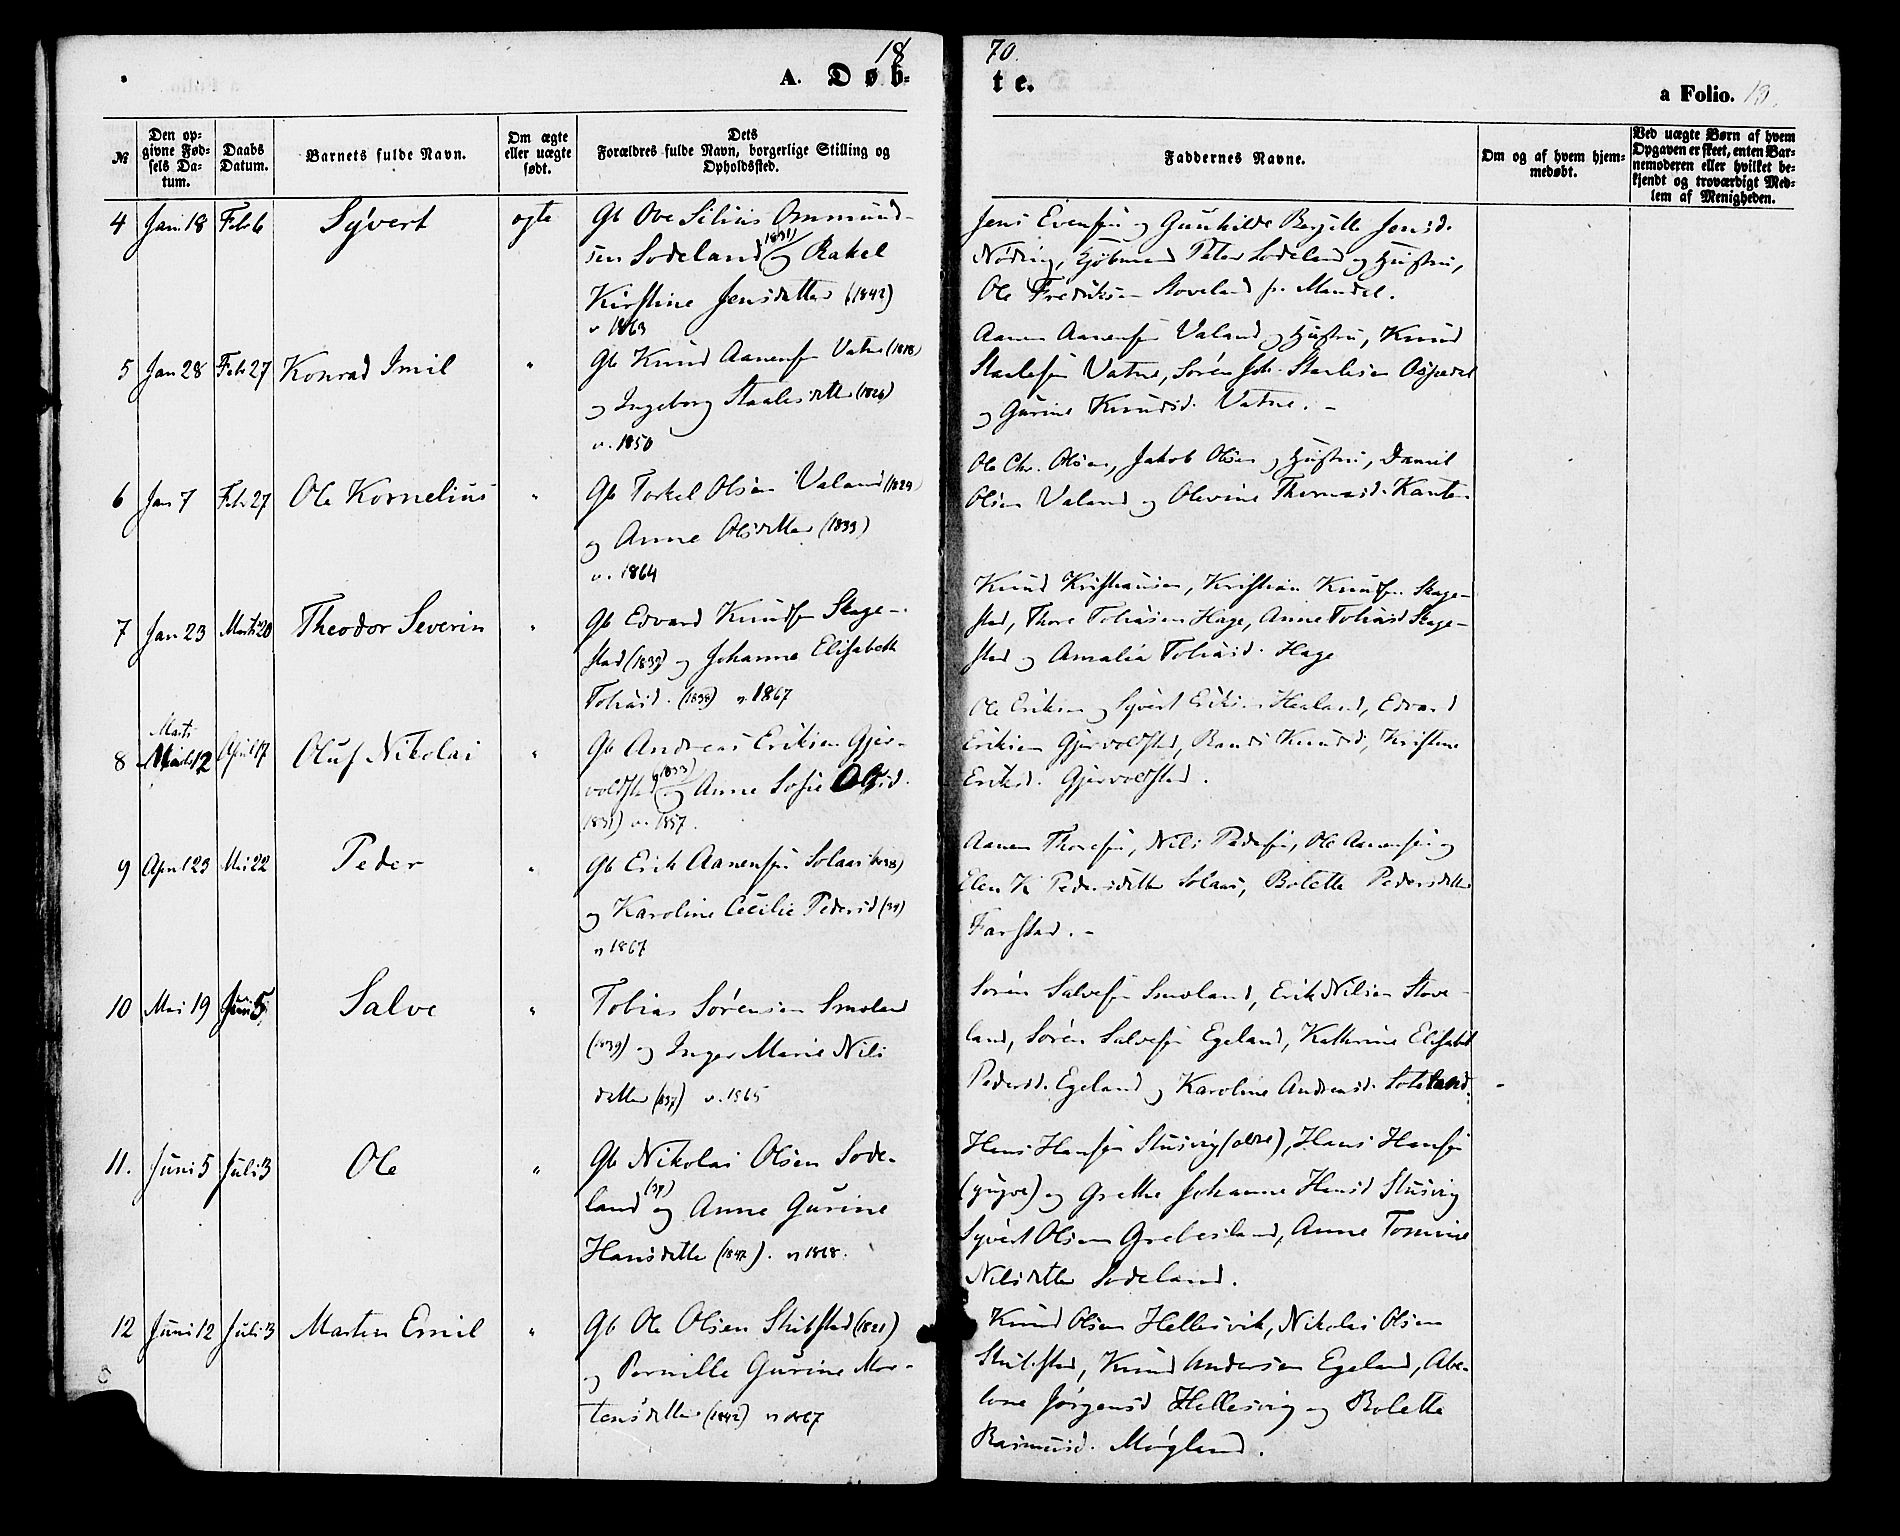 1870.
A. Døbte.
a Folio. 13.
№
Den opgivne Fødsels Datum.
Daabs Datum.
Barnets fulde Navn.
Om ægte eller uægte født.
Dets Forældres fulde Navn, borgerlige Stilling og Opholdssted.
Faddernes Navne.
Om og af hvem hjemmedøbt.
Ved uægte Børn af hvem Opgaven er skeet, enten Barnemoderen eller hvilket bekjendt og troværdigt Medlem af Menigheden.
4 Jan. 18 Feb 6 Syvert ægte
Gb Ove Silius Ommund-
sen Sodeland (1831) og Rakel
Kirstine Jensdatter (1842)
v 1863
Jens Evensen og Gunhilde Bergitte Jensd.
Nöding, Kjöbmand Peter Sodeland og Hustru,
Ole Fredriksen Stoveland fr. Mandal.
5 Jan 28 Feb 27 Konrad Imil "
Gb Knud Aanensen Vatne (1818)
og Ingeborg Staalesdatter (1826)
v. 1850
Aanen Aanensen Valand og Hustru, Knud
Stalesen Vatne, Sören Joh. Stalesen
og Gurine Knudsd. Vatne. -
6 Jan 7 Feb 27 Ole Kornelius "
Gb Torkel Olsen Valand (1829)
og Anne Olsdatter (1833)
v. 1864
Ole Chr. Olsen, Jakob Olsen og Hustru, Daniel
Olsen Valand og Olevine Thomasd.
7 Jan 23 Marts 20 Theodor Severin "
Gb Edvard Knudsen Skage-
stad (1839) og Johanne Elisabeth
Tobiasd. (1838) v. 1867
Knud Kristiansen, Kristian Knudsen Skage-
stad, Thore Tobiasen Hage, Anne Tobiasd Skage-
stad og Amalia Tobiasd. Hage
8 Marts 12 April 17 Oluf Nikolai "
Gb Andreas Eriksen Gjer-
voldstad (1833) og Anne Sofie Olsd.
1831) v. 1857.
Ole Eriksen og Syvert Eriksen Heoland, Edvard
Eriksen Gjervoldstad, Randi Knudsd, Kristine
Eriksd. Gjervoldstad.
9 April 23 Mai 22 Peder "
Gb Erik Aanensen Solaas (1838)
og Karoline Cecilie Pedersd (39)
v 1867
Aanen Thoresen, Nils Pedersen, Ole Aanensen og
Elen K Pedersdatter Solaas, Bolette Pedersdatter
Farstad. -
10 Mai 19 Juni 5 Salve "
Tobias Sörensen Smoland
(1839) og Inger Marie Nils
datter (1837) v. 1865
Sören Salvesen Smoland, Erik Nilsen Stove-
land, Sören Salvesen Egeland, Kathrine Elisabet
Pedersd. Egeland og Karoline Andreasd.
11. Juni 5 Juli 3 Ole "
Gb Nikolai Olsen Sode-
land (39) og Anne Gurine
Hansdatter (1842). v 1868.
Hans Hansen Stusvig (ældre), Hans Hansen
(yngre) og Grethe Johanne Hansd Stusvig
Syvert Olsen Grebesland, Anne Tomine
Nilsdatter Sodeland.
12 Juni 12 Juli 3 Marten Emil "
Gb Ole Olsen Skibstad (1821)
og Pernille Gurine Mar-
tensdatter (1842) v 1867
Knud Olsen Hellesvik, Nikolai Olsen
Skibstad, Knud Andersen Egeland, Abe-
lone Jörgensd Hellesvig og Bolette
Rasmusd. Mögland.